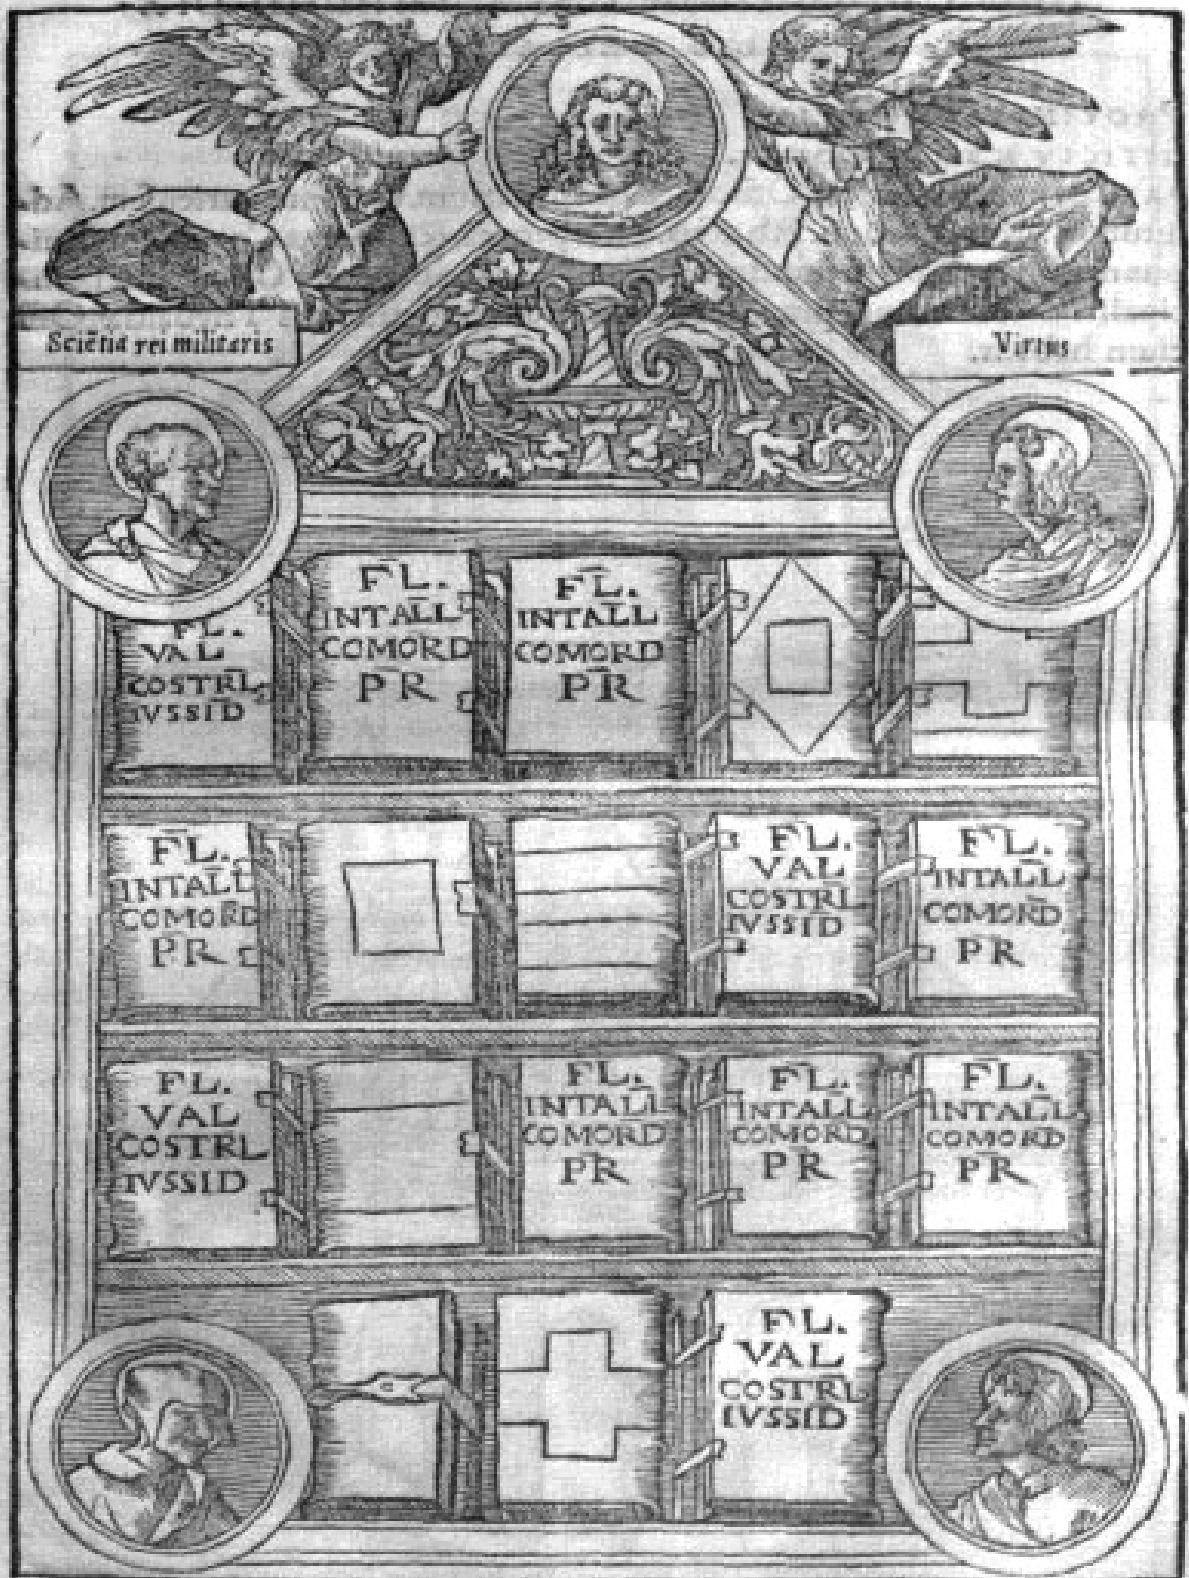 Sciẽtia rei militaris
Virtus
FL.
VAL
COSTRL
IVSSID
FL.
INTALL
COMORD
PR
FL.
INTALL
COMORD
PR
FL.
INTALL
COMORD
PR
FL.
VAL
COSTRL
IVSSID
FL.
INTALL
COMORD
PR
FL.
VAL
COSTRL
IVSSID
FL.
INTALL
COMORD
PR
FL.
INTALL
COMORD
PR
FL.
INTALL
COMORD
PR
FL.
VAL
COSTRL
IVSSID